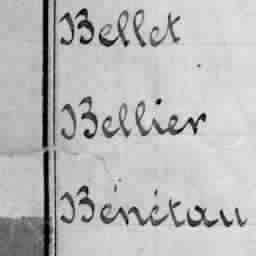 Bellet
Bellier
Bénétau